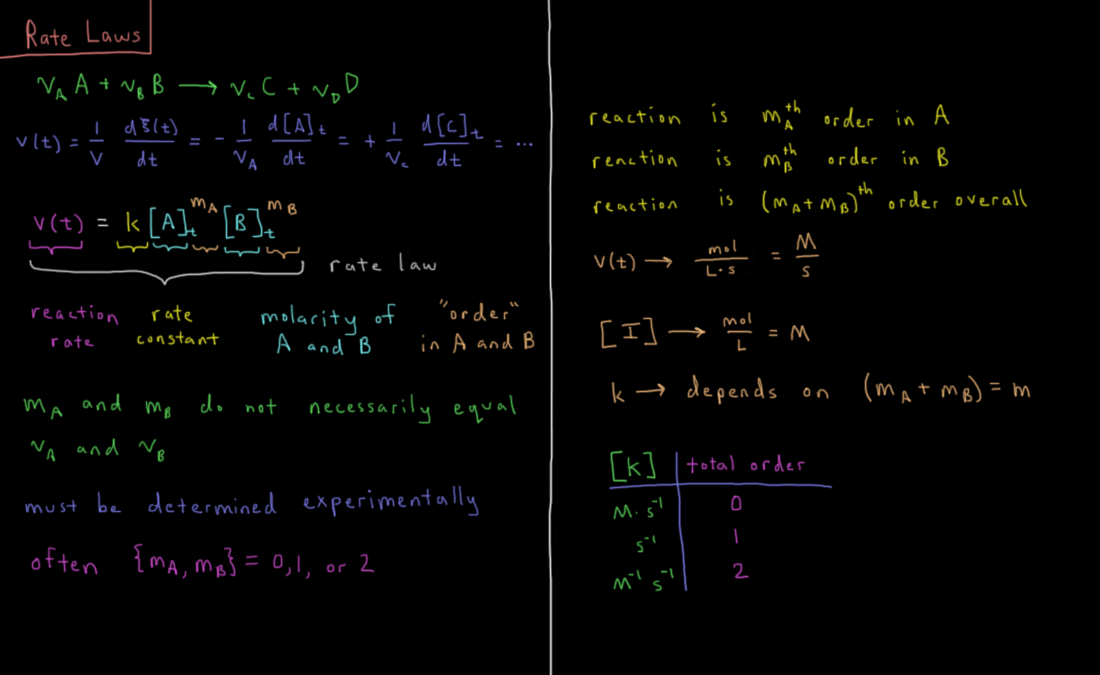 Rate Laws
ν_A A + ν_B B ⟶ ν_c C + ν_D D
v(t) = 1/V dξ(t)/dt = - 1/ν_A d[A]_t/dt = + 1/ν_c d[C]_t/dt = ...
v(t) = k [A]_t^m_A [B]_t^m_B
rate law
reaction rate
rate constant
molarity of A and B
"order" in A and B
m_A and m_B do not necessarily equal
ν_A and ν_B
must be determined experimentally
often {m_A, m_B} = 0, 1, or 2
reaction is m_A^th order in A
reaction is m_B^th order in B
reaction is (m_A + m_B)^th order overall
v(t) ⟶ mol/L·s = M/s
[I] ⟶ mol/L = M
k ⟶ depends on (m_A + m_B) = m
[k] total order
M·s^-1 0
s^-1 1
M^-1 s^-1 2